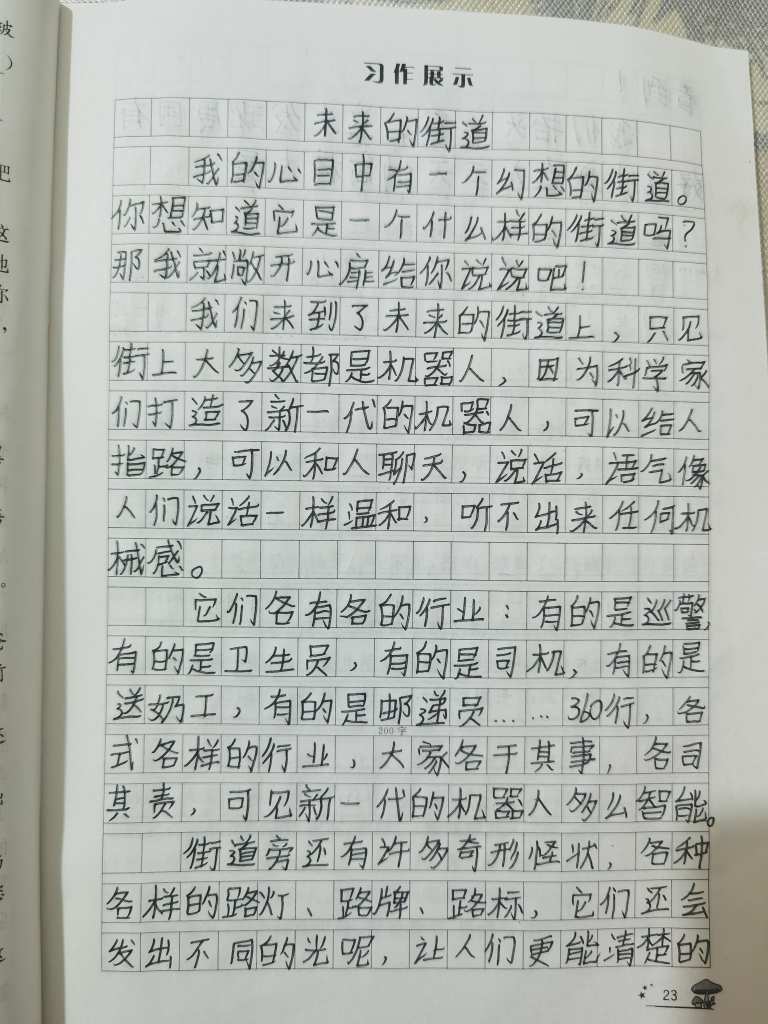 习作展示
未来的街道
我的心目中有一个幻想的街道。
你想知道它是一个什么样的街道吗?
那我就敞开心扉给你说说吧!
我们来到了未来的街道上,只见
街上大多数都是机器人,因为科学家
们打造了新一代的机器人,可以给人
指路,可以和人聊天,说话,语气像
人们说话一样温和,听不出来任何机
械感。
它们各有各的行业:有的是巡警,
有的是卫生员,有的是司机,有的是
送奶工,有的是邮递员……360行,各
200字
式各样的行业,大家各干其事,各司
其责,可见新一代的机器人多么智能。
街道旁还有许多奇形怪状,各种
各样的路灯、路牌、路标,它们还会
发出不同的光呢,让人们更能清楚的
23